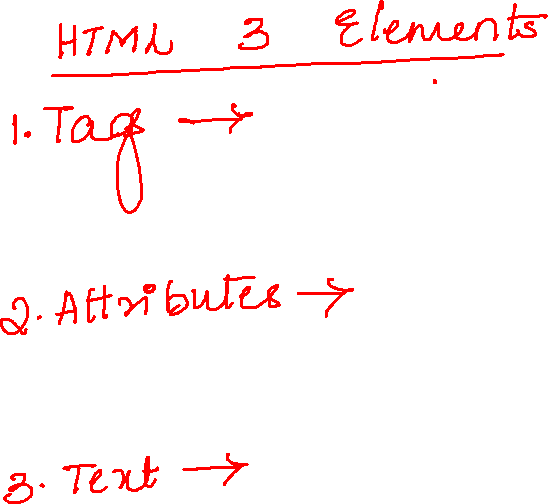 HTML 3 Elements
1. Tags →
2. Attributes →
3. Text →